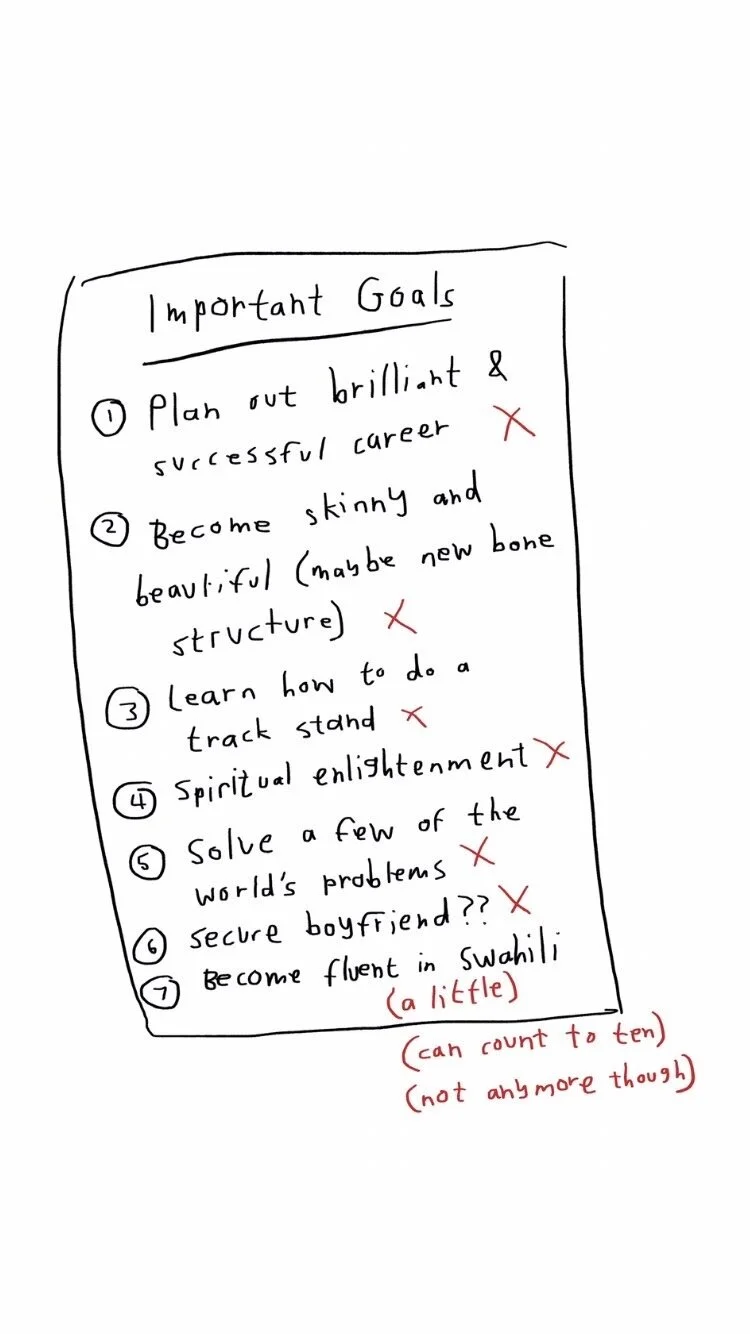 Important Goals
① Plan out brilliant &
successful career X
② Become skinny and
beautiful (maybe new bone
structure) X
③ Learn how to do a
track stand X
④ Spiritual enlightenment X
⑤ Solve a few of the
world's problems X
⑥ Secure boyfriend?? X
⑦ Become fluent in Swahili
(a little)
(can count to ten)
(not anymore though)